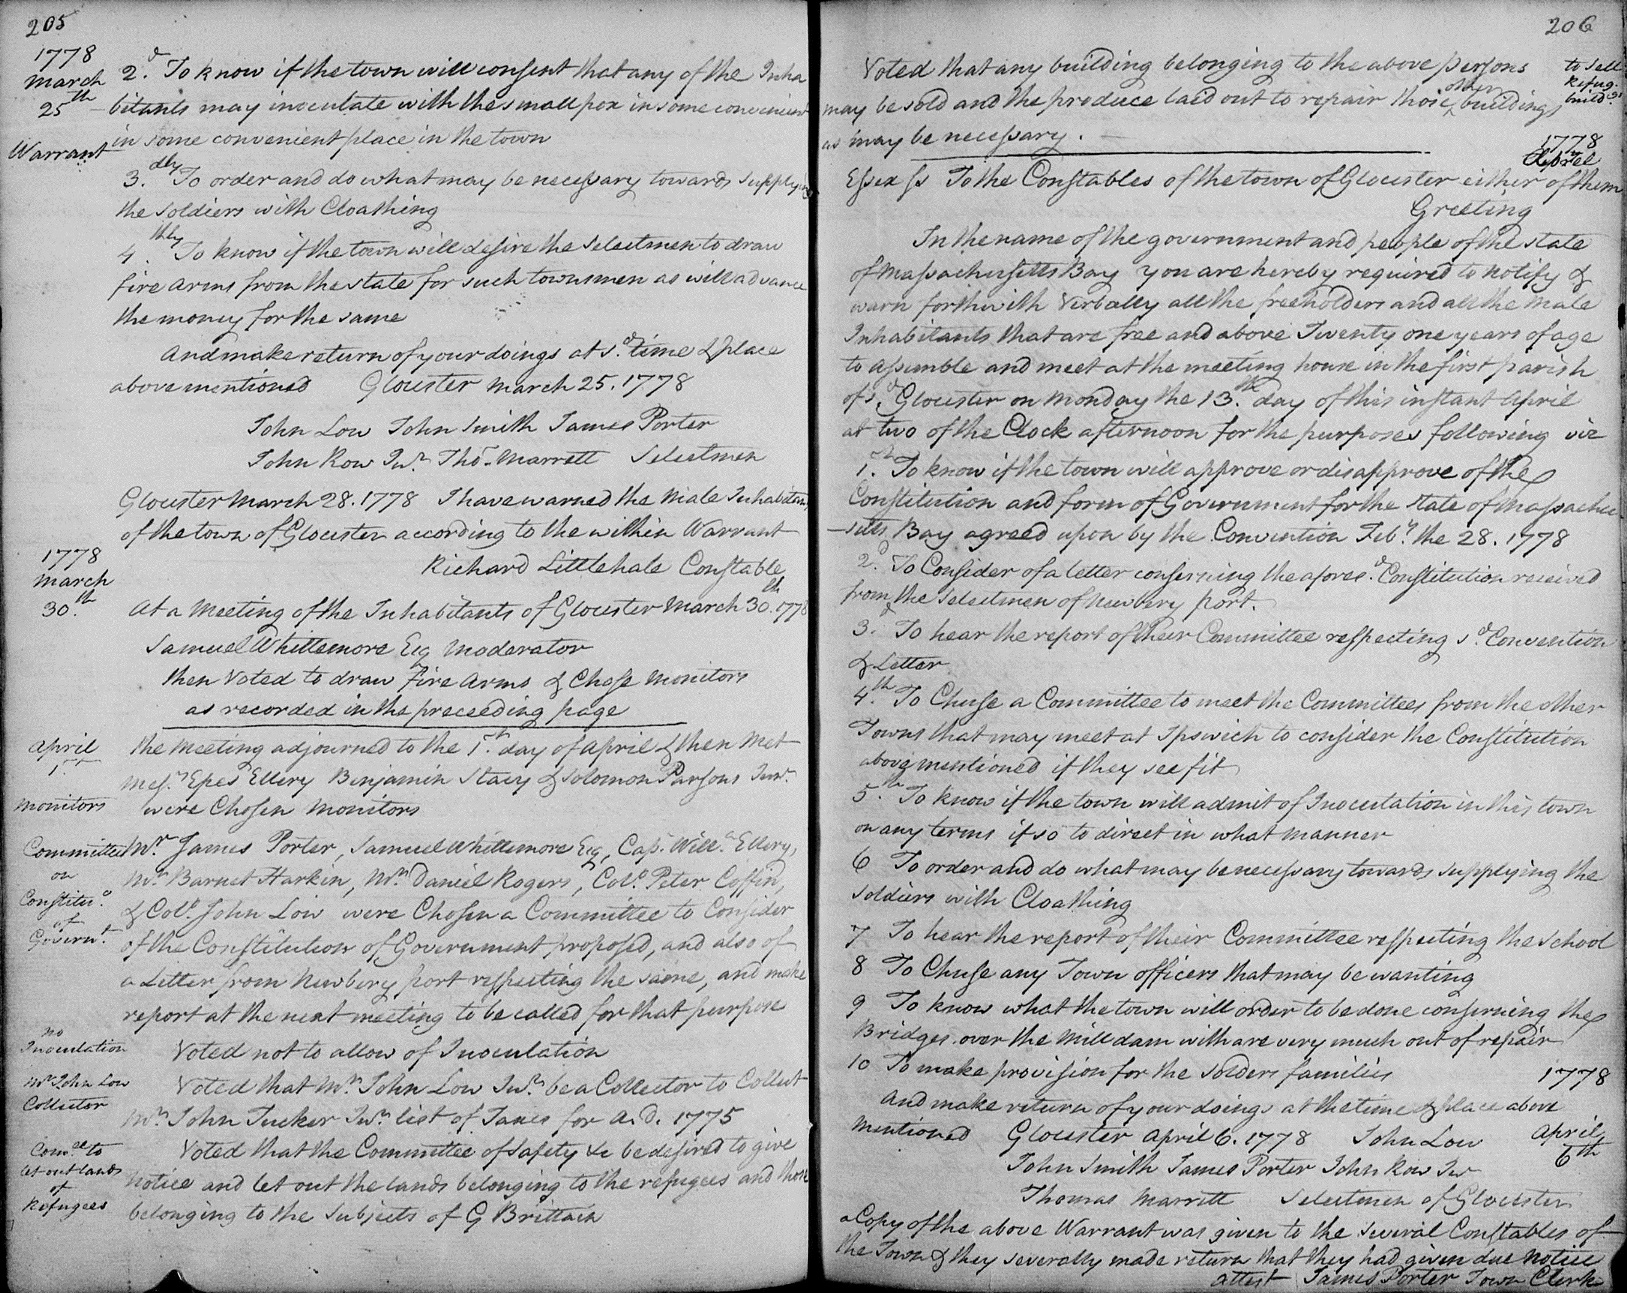 205
1778
March
25th
Warrant
2.d To know if the town will consent that any of the Inha
bitants may inoculate with the small pox in some convenient
in some convenient place in the town
3.dly To order and do what may be necessary towards supplying
the soldiers with Cloathing
4.thly To know if the town will desire the Selectmen to draw
fire arms from the state for such townsmen as will advance
the money for the same
And make return of your doings at s.d time & place
above mentioned Glocester March 25. 1778
John Low John Smith James Porter
John Row Junr. Tho.s Marrett Selectmen
Glocester March 28. 1778 I have warned the Male Inhabitan
of the town of Glocester according to the within Warrant
Richard Littlehale Constable
1778
March
30.th
At a Meeting of the Inhabitants of Glocester March 30.th 1778
Samuel Whittemore Esq Moderator
then Voted to draw Fire Arms & Chose Monitors
as recorded in the preceeding page
April
1.st
Monitors
the Meeting adjourned to the 1.st day of April & then Met
Mess.rs Epes Ellery Benjamin Stacy & Solomon Parsons Junr.
were Chosen Monitors
Committee
on
Constitun.
of
Governt.
Mr. James Porter, Samuel Whittemore Esq, Cap. Will.m Ellery,
Mr. Barnet Harkin, Mr. Daniel Rogers, Col.o Peter Coffin,
& Col.o John Low were Chosen a Committee to Consider
of the Constitution of Government proposed, and also of
a Letter from Newbery port respecting the same, and make
report at the next meeting to be called for that purpose
no
Inoculation
Voted not to allow of Inoculation
Mr John Low
Collector
Voted that Mr. John Low Junr. be a Collector to Collect
Mr. John Tucker Junr. list of Taxes for A.D. 1775
Comee to
let out lands
of
Refugees
Voted that the Committee of safety &c be desired to give
notice and let out the lands belonging to the refugees and those
belonging to the Subjects of G Brittain
206
Voted that any building belonging to the above persons
may be sold and the produce laid out to repair those other buildings
as may be necessary.
to sell
Refug.
build.gs
1778
April
Essex ss To the Constables of the town of Glocester either of them
Greeting
In the name of the government and people of the state
of Massachusetts Bay you are hereby required to notify &
warn forthwith Verbally all the freeholders and all the Male
Inhabitants that are free and above Twenty one years of age
to assemble and meet at the meeting house in the first parish
of s.d Glocester on Monday the 13.th day of this instant April
at two of the Clock afternoon for the purposes following viz
1.st To know if the town will approve or disapprove of the
Constitution and form of Government for the state of Massachu
-setts Bay agreed upon by the Convention Feby. the 28. 1778
2.d To Consider of a letter conserning the afores.d Constitution received
from the Selectmen of Newbery port.
3.d To hear the report of their Committee respecting s.d Convention
& Letter
4.th To Chuse a Committee to meet the Committees from the other
Towns that may meet at Ipswich to consider the Constitution
above mentioned if they see fit
5.th To know if the town will admit of Inoculation in this town
on any terms if so to direct in what manner
6 To order and do what may be necessary towards supplying the
Soldiers with Cloathing
7 To hear the report of their Committee respecting the School
8 To Chuse any Town officers that may be wanting
9 To know what the town will order to be done conserning the
Bridges over the Mill dam with are very much out of repair
10 To make provision for the Solders families
1778
And make return of your doings at the time & place above
Mentioned Glocester April 6. 1778 John Low
April
6th
John Smith James Porter John Row Jnr
Thomas Marrett Selectmen of Glocester
a Copy of the above Warrant was given to the Several Constables of
the Town & they severally made return that they had given due notice
attest James Porter Town Clerk